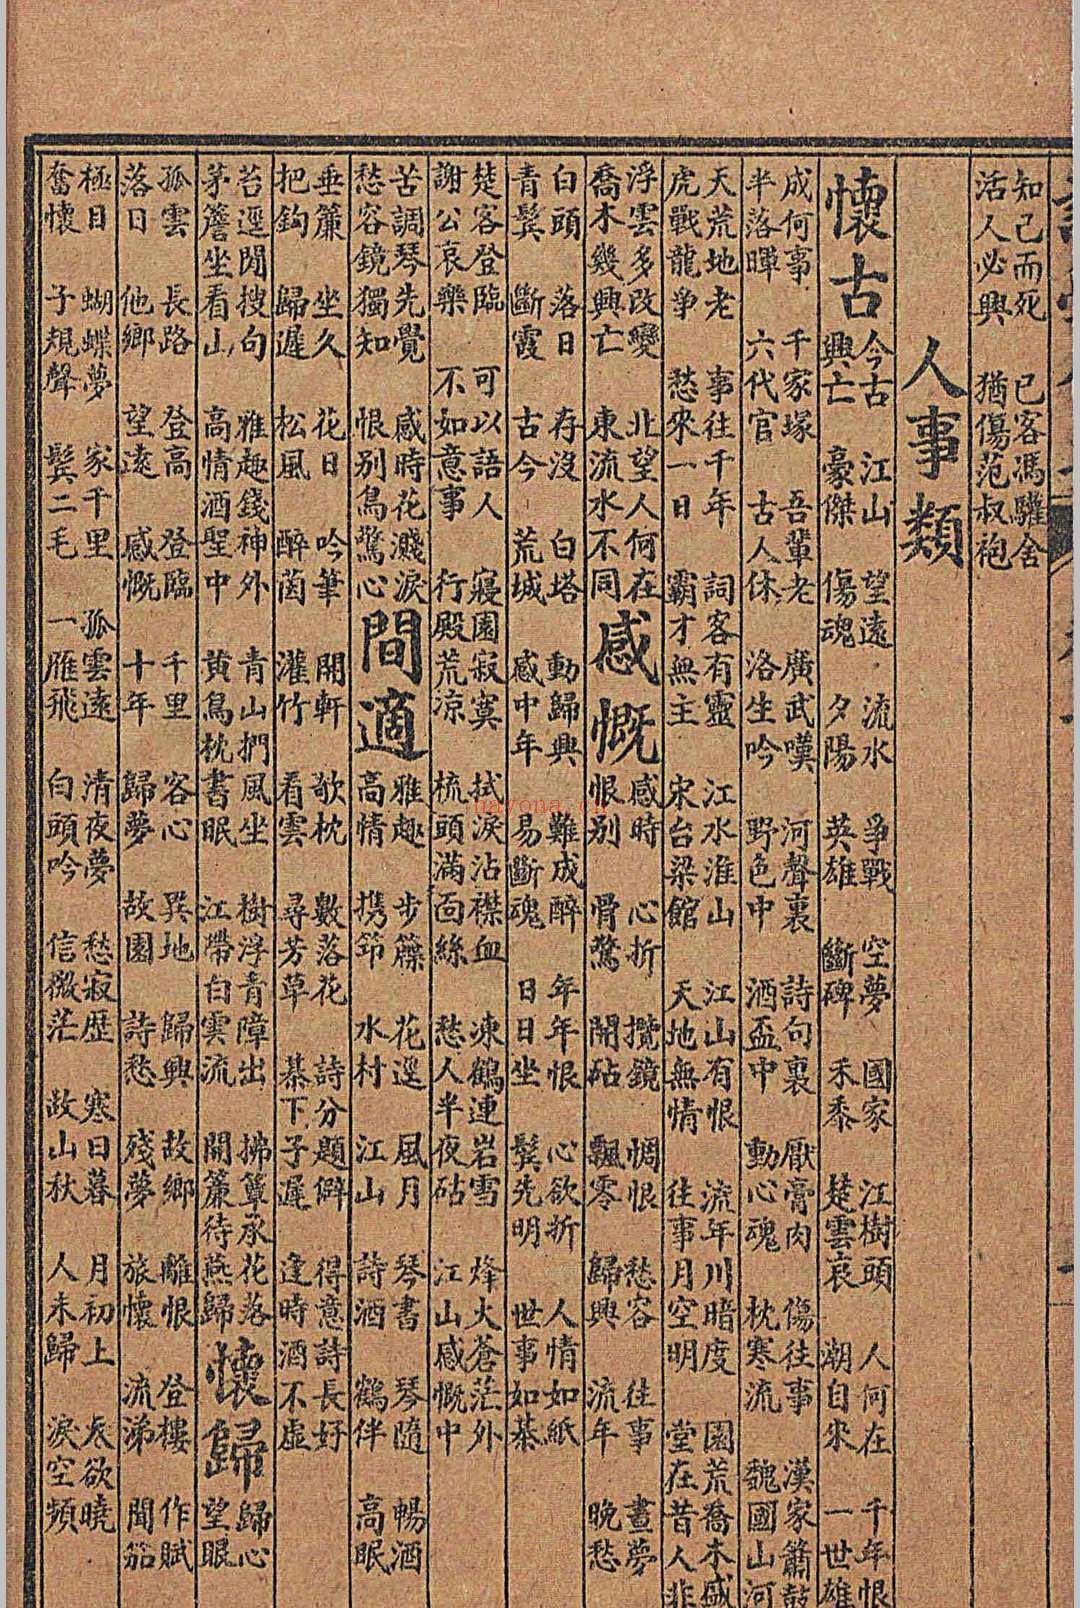 知己而死　已客馮驩舍
活人必興　猶傷范叔袍
人事類
懷古
今古　江山　望遠　流水　爭戰　空夢　國家　江樹頭　人何在　千年恨
興亡　豪傑　傷魂　夕陽　英雄　斷碑　禾黍　楚雲哀　潮自來　一世雄
成何事　千家塚　吾輩老　廣武嘆　河聲裏　詩句裏　厭膏肉　傷往事　漢家簫鼓
半落暉　六代官　古人休　洛生吟　野色中　酒盃中　動心魂　枕寒流　魏國山河
天荒地老　事往千年　詞客有靈　江水淮山　江山有恨　流年川暗度　園荒喬木感
虎戰龍爭　愁來一日　霸才無主　宋台梁館　天地無情　往事月空明　堂在昔人非
浮雲多改變　北望人何在
喬木幾興亡　東流水不同
感慨
感時　心折　攬鏡　惆恨　愁容　往事　晝夢
恨別　骨驚　開砧　飄零　歸興　流年　晚愁
白頭　落日　存沒　白塔　動歸興　難成醉　年年恨　心欲折　人情如紙
青鬂　斷霞　古今　荒城　感中年　易斷魂　日日坐　鬂先明　世事如棊
楚客登臨　可以語人　寢園寂寞　拭淚沾襟血　凍鶴連岩雪　烽火蒼茫外
謝公哀樂　不如意事　行殿荒凉　梳頭滿面絲　愁人半夜砧　江山感慨中
苦調琴先覺　感時花濺淚
愁容鏡獨知　恨別鳥驚心
間適
雅趣　步簷　花逕　風月　琴書　琴隨　暢酒
高情　携筇　水村　江山　詩酒　鶴伴　高眠
垂簾　坐久　花日　吟筆　開軒　欹枕　數落花　詩分題僻　得意詩長好
把鈎　歸遲　松風　醉茵　灌竹　看雲　尋芳草　棊下子遲　逢時酒不虛
苔逕閒搜句　雅趣錢神外　青山捫風坐　樹浮青障出　拂簟承花落
茅簷坐看山　高情酒聖中　黄鳥枕書眠　江帶白雲流　開簾待燕歸
懷歸
歸心
望眼
孤雲　長路　登高　登臨　千里　客心　異地　歸興　故鄉　離恨　登樓　作賦
落日　他鄉　望遠　感慨　十年　歸夢　故園　詩愁　殘夢　旅懷　流涕　聞笳
極目　蝴蝶夢　家千里　孤雲遠　清夜夢　愁寂歷　寒日暮　月初上　天欲曉
奮懷　子規聲　鬂二毛　一雁飛　白頭吟　信微茫　故山秋　人未歸　淚空頻